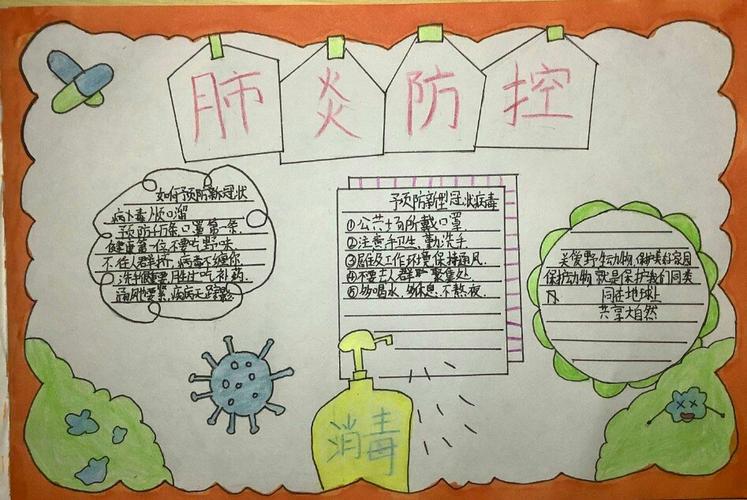 肺炎防控
如何预防新冠状
病毒顺口溜
预防千万条口罩第一条
健康第一位不要吃野味
不往人群挤,病毒不缠你
洗手做要胜生吃补药
通风要紧,疾病无踪影
预防新型冠状病毒
①公共场所戴口罩
②注意手卫生,勤洗手
③居住工作环境保持通风
④不要去人群聚集处
⑤多喝水,多休息,不熬夜
关爱野生动物,保护美好家园
保护动物就是保护我们同类
同在地球上
共享大自然
消毒